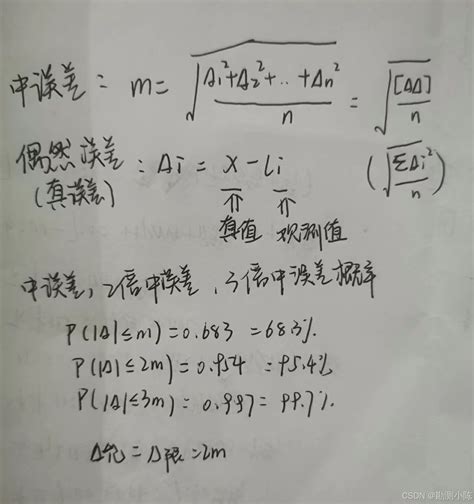 中误差: m = √(Δ₁²+Δ₂²+...+Δn² / n) = √([ΔΔ] / n)
偶然误差 : Δi = X - Li (√(ΣΔi² / n))
(真误差) 真值 观测值
中误差, 2倍中误差, 3倍中误差概率
P(|Δ|≤m) = 0.683 = 68.3%
P(|Δ|≤2m) = 0.954 = 95.4%
P(|Δ|≤3m) = 0.997 = 99.7%
Δ允 = Δ限 = 2m
CSDN @勘测小陈